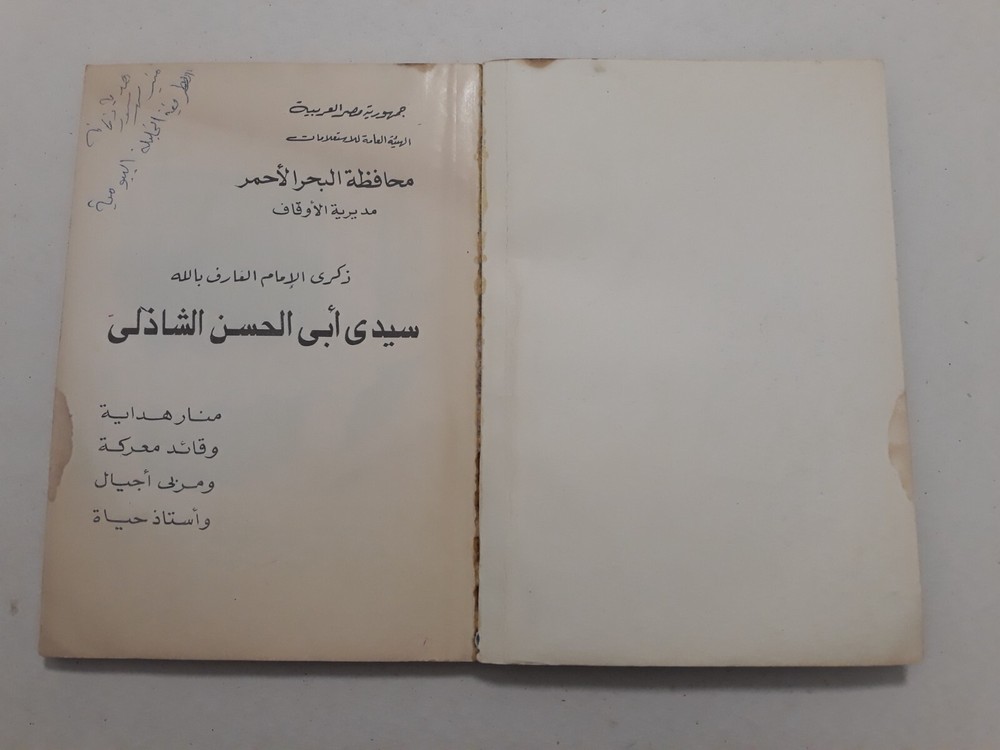 جمهورية مصر العربية
الهيئة العامة للاستعلامات
محافظة البحر الأحمر
مديرية الأوقاف
ذكرى الإمام العارف بالله
سيدى أبى الحسن الشاذلى
منار هداية
وقائد معركة
ومربى أجيال
وأستاذ حياة